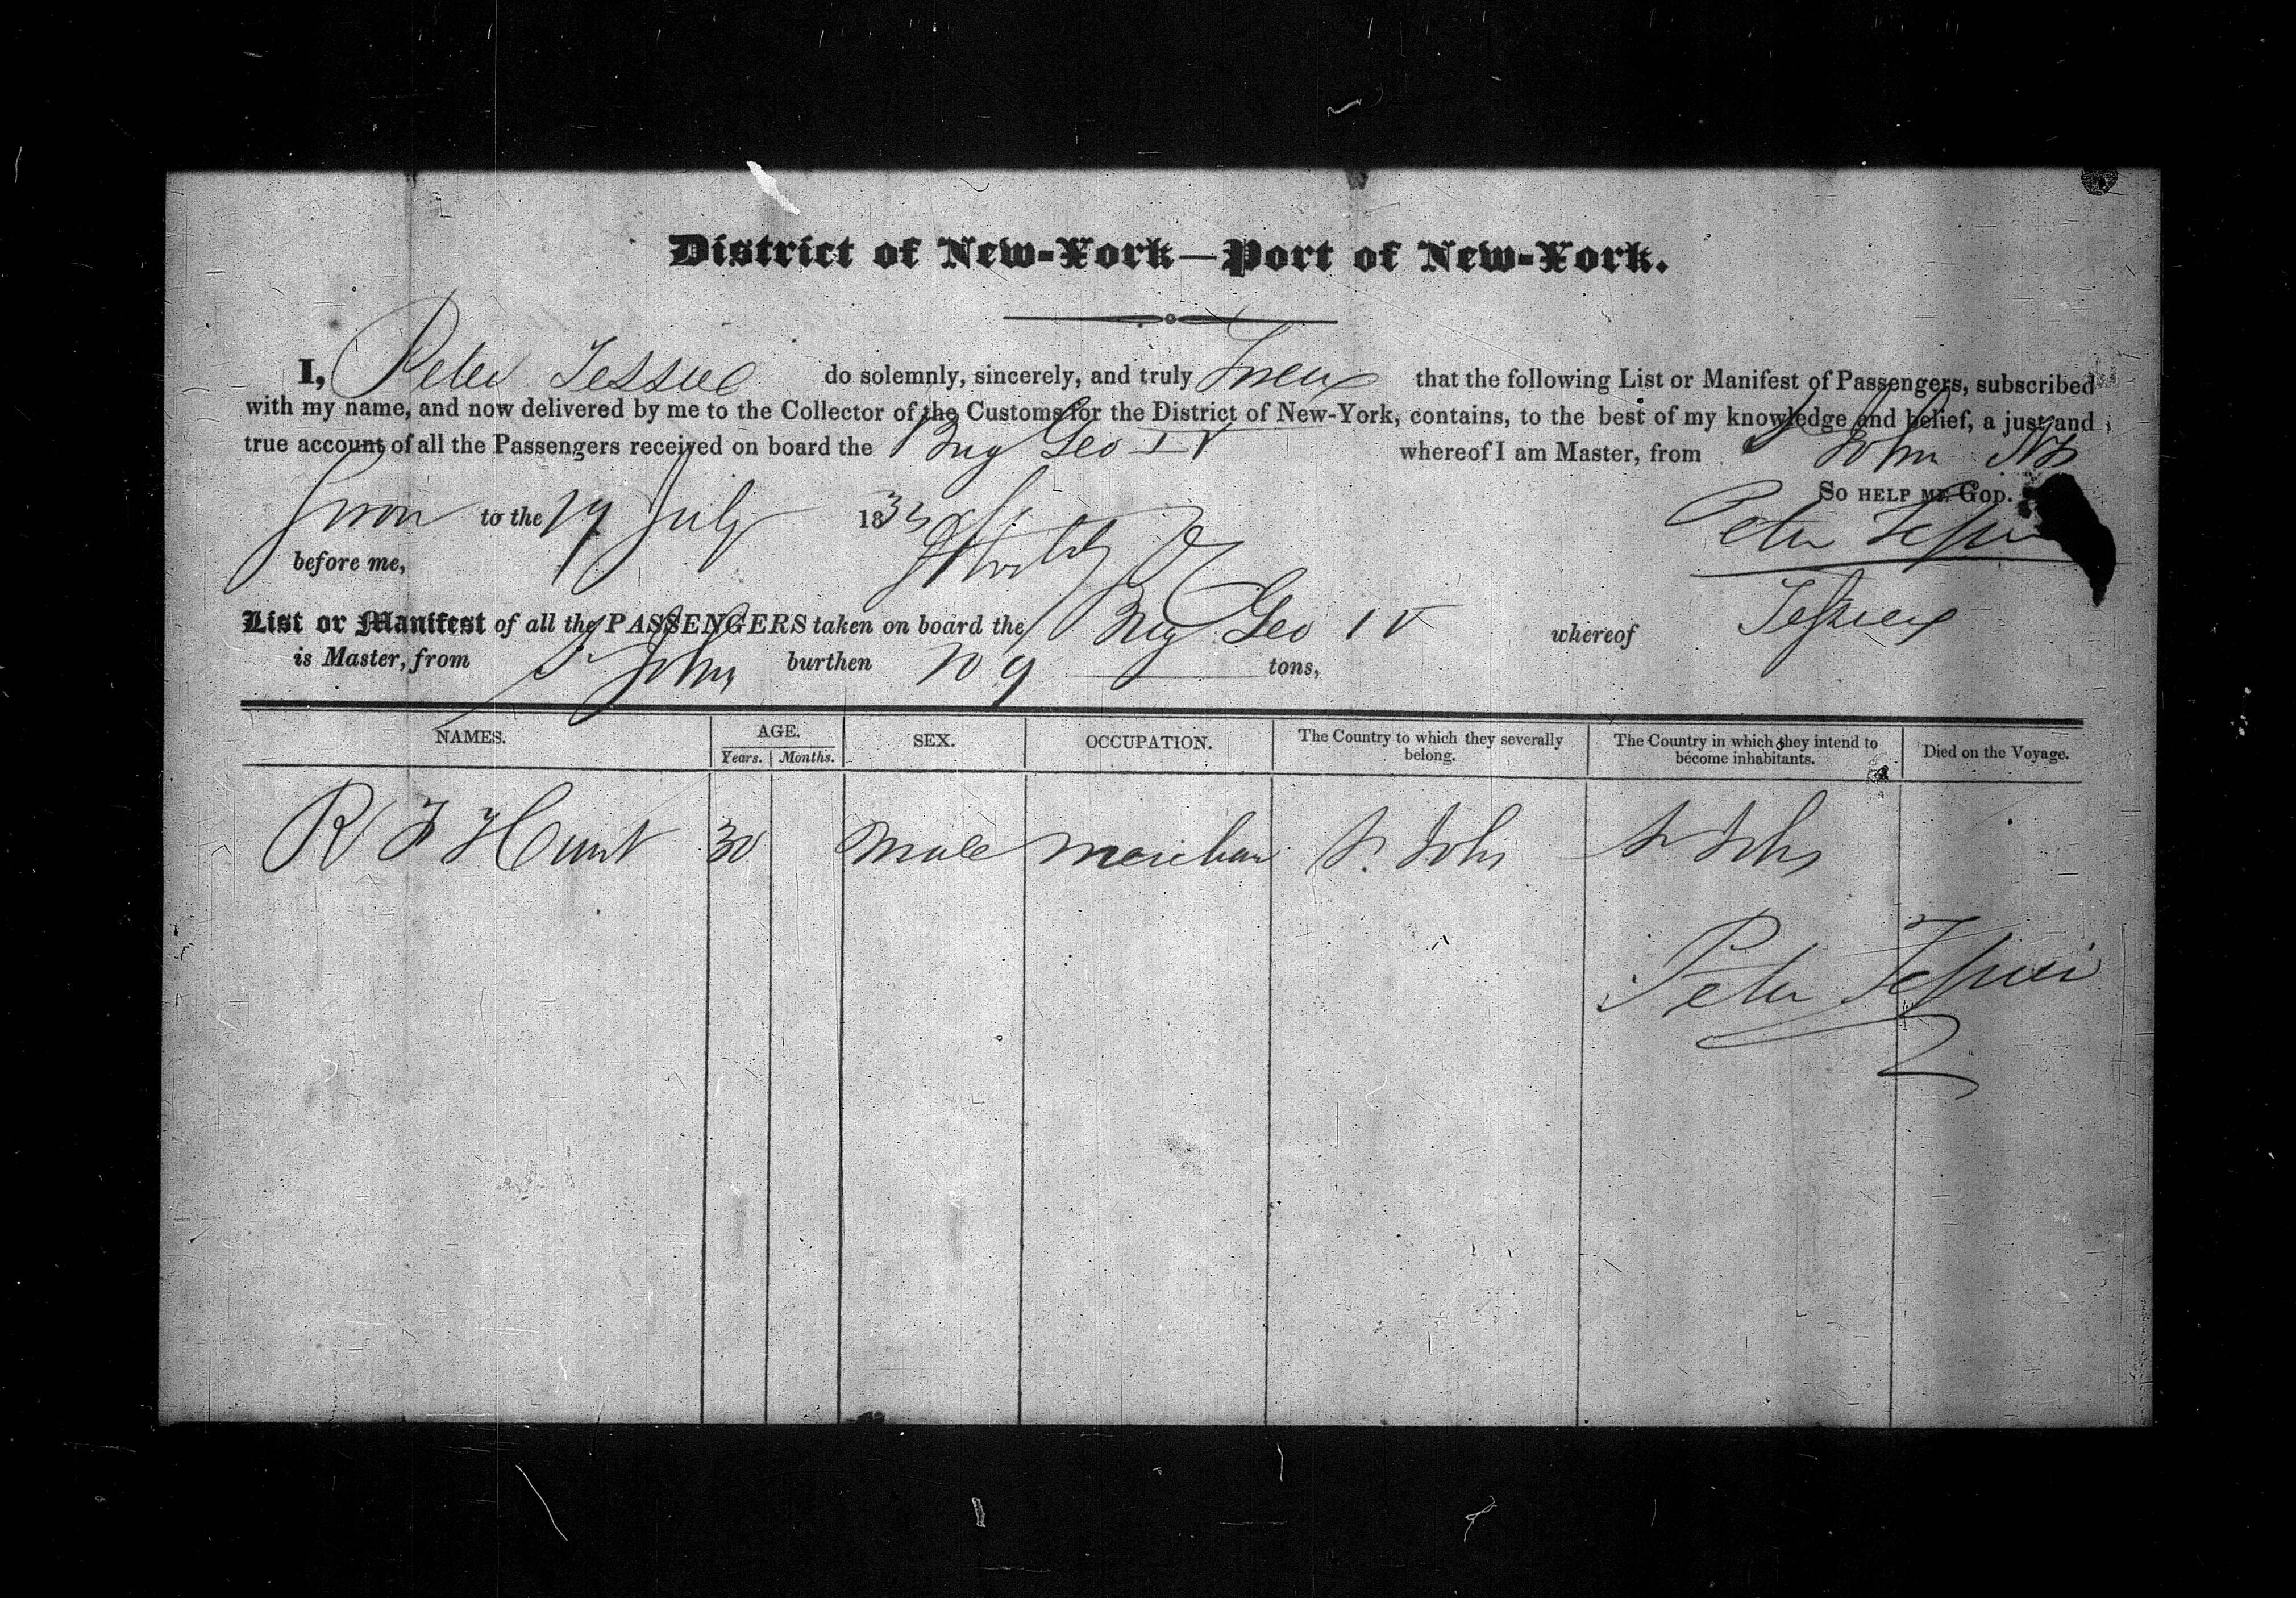 District of New-York—Port of New-York.
I, Peter Tessier do solemnly, sincerely, and truly Swear that the following List or Manifest of Passengers, subscribed
with my name, and now delivered by me to the Collector of the Customs for the District of New-York, contains, to the best of my knowledge and belief, a just and
true account of all the Passengers received on board the Brig Geo IV whereof I am Master, from St John NB
So help me God.
Sworn to the 19 July 1833 Peter Tessier
before me,
List or Manifest of all the PASSENGERS taken on board the Brig Geo IV whereof Tessier
is Master, from St John burthen 109 tons,
NAMES. AGE. SEX. OCCUPATION. The Country to which they severally belong. The Country in which they intend to become inhabitants. Died on the Voyage.
Years. Months.
R F Hunt 30 Male Merchan St. John St John
Peter Tessier